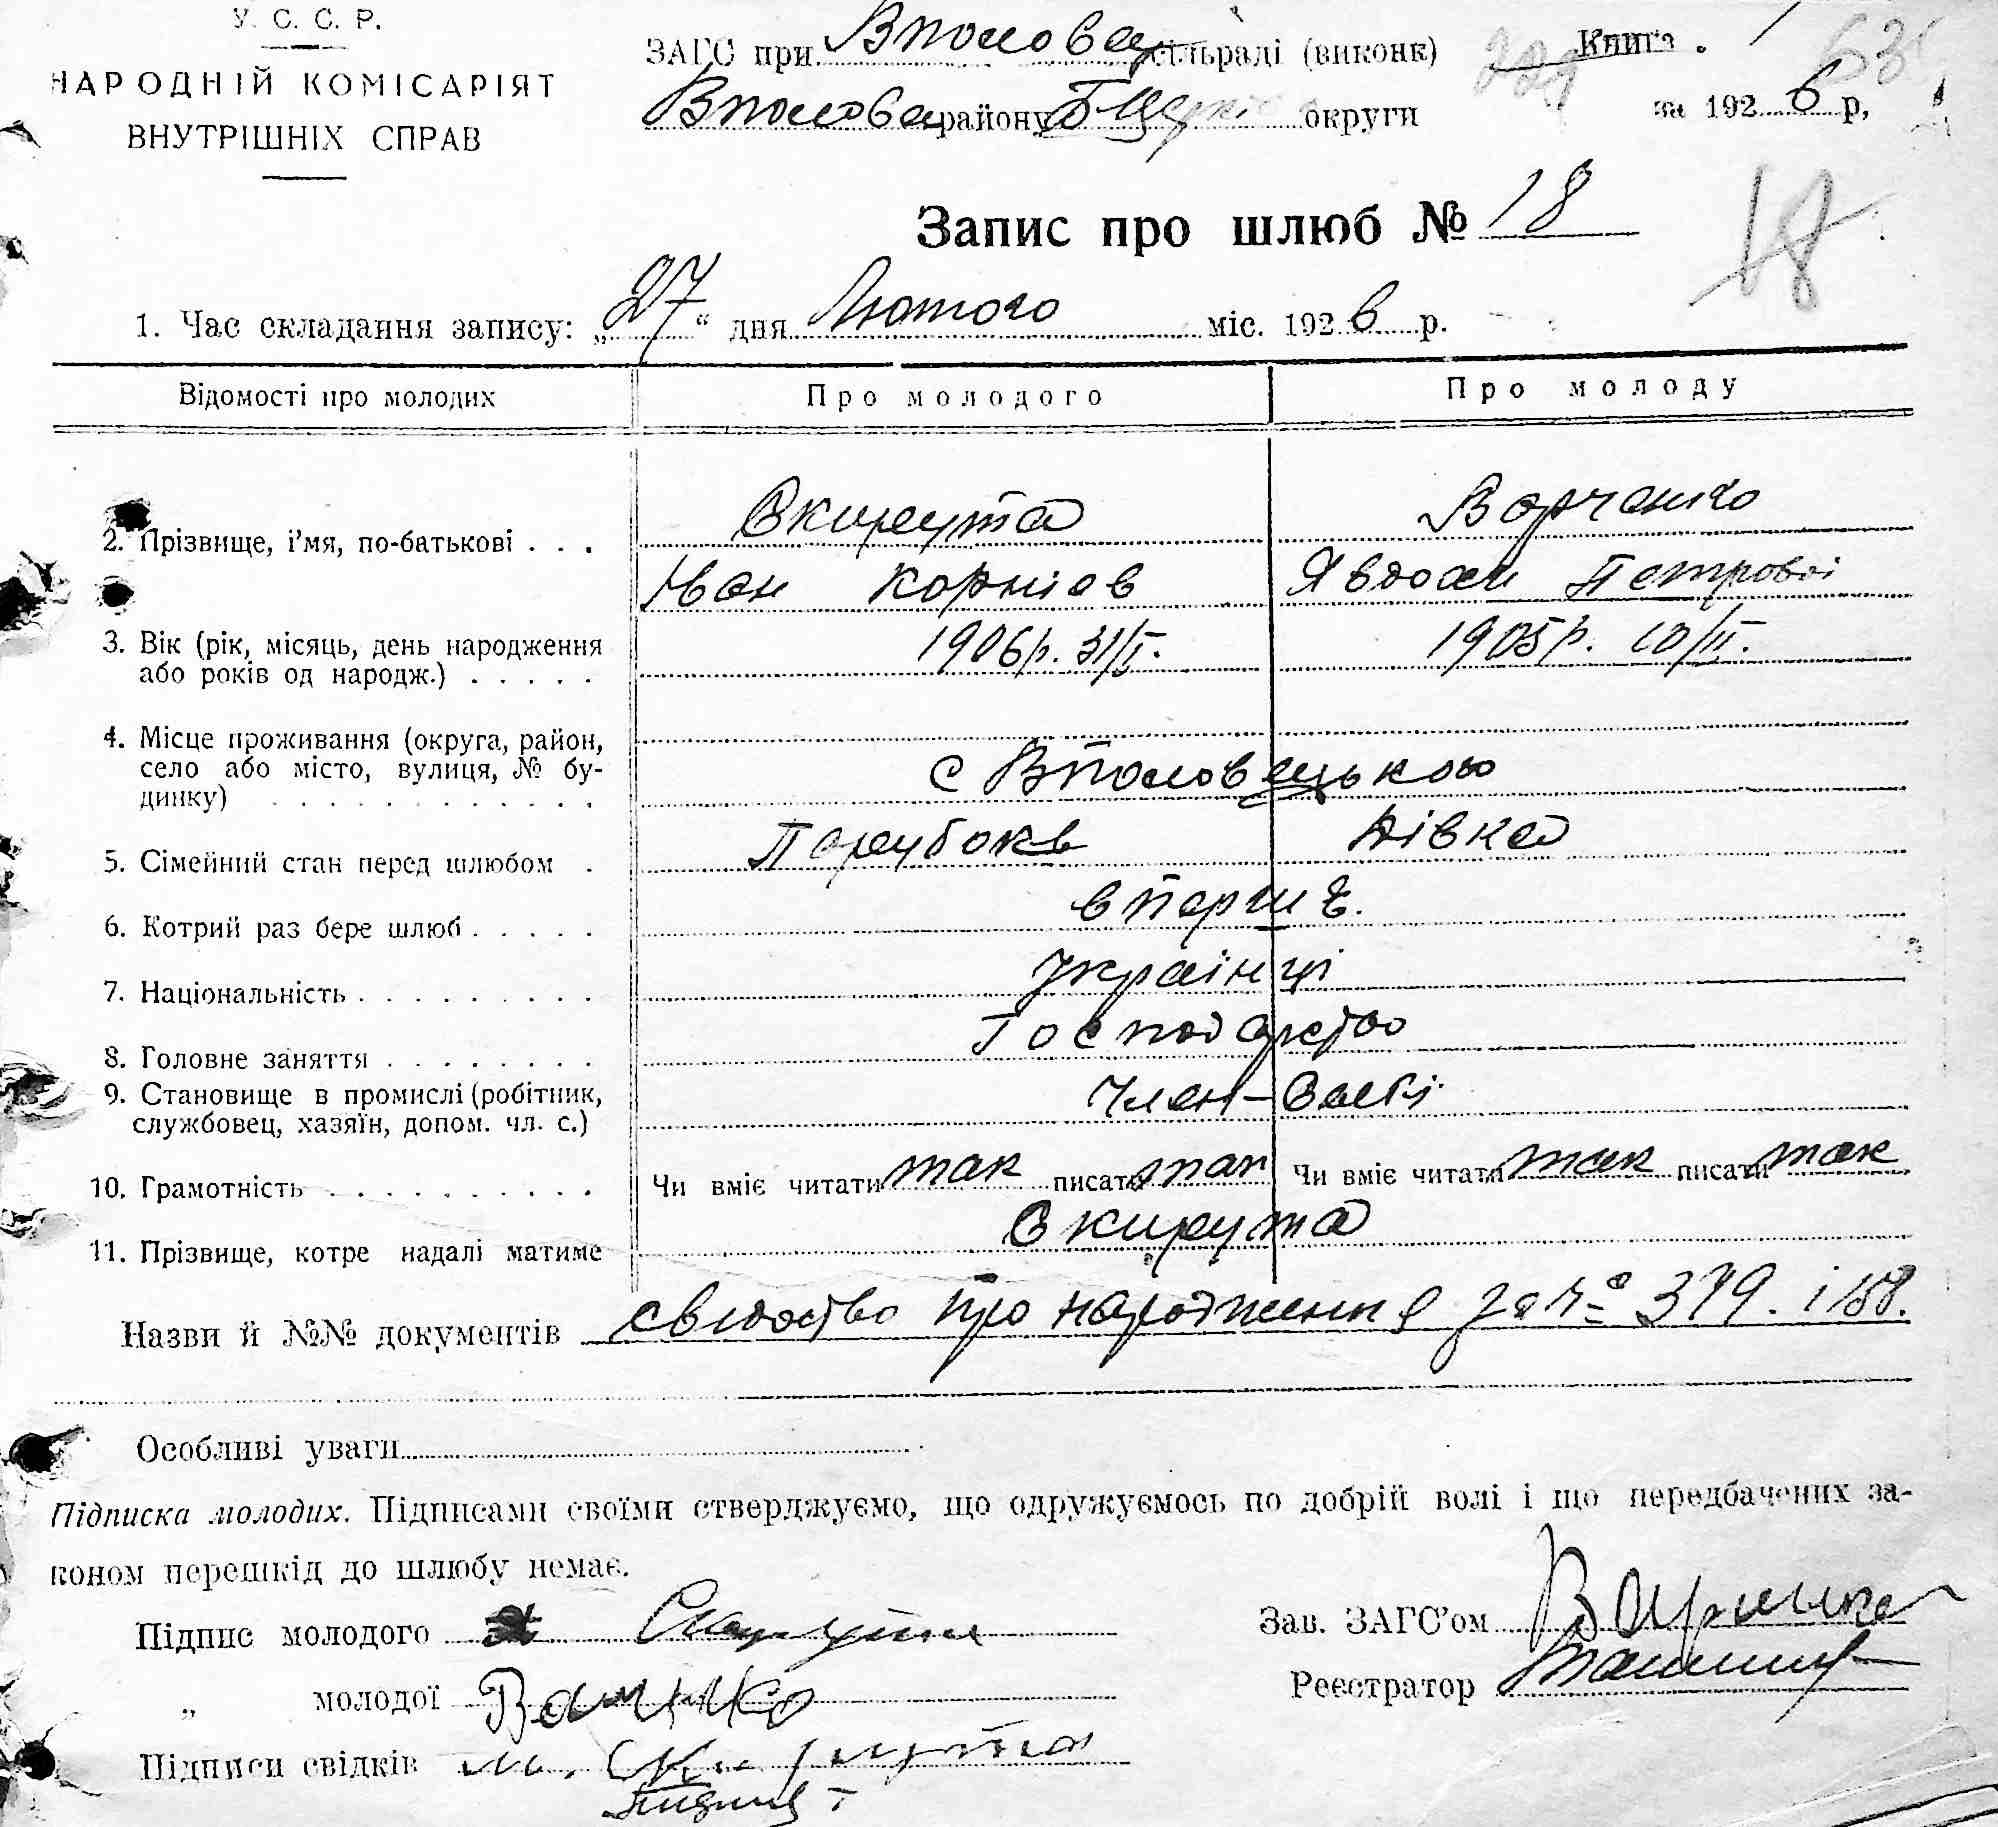 У. С. С. Р.
НАРОДНІЙ КОМІСАРІЯТ
ВНУТРІШНІХ СПРАВ
ЗАГС при Вполовец сільраді (виконк)
Вполовец району Б Церків округи
Книга. 1
за 1926 р,
Запис про шлюб № 18
18
1. Час складання запису: „27“ дня Лютого міс. 1926 р.
Відомості про молодих Про молодого Про молоду
2. Прізвище, і'мя, по-батькові . . . Скирута Варченко
Иван Корніев Явдохи Петрової
3. Вік (рік, місяць, день народження 1906р. 31/I. 1905р. 10/II.
або років од народж.) . . . . .
4. Місце проживання (округа, район,
село або місто, вулиця, № бу- с Вполовецькою
динку) . . . . . . . . . . . .
5. Сімейний стан перед шлюбом . Парубокъ Дівка
6. Котрий раз бере шлюб . . . . . вперше.
7. Національність . . . . . . . . . Українці
8. Головне заняття . . . . . . . . Господарство
9. Становище в промислі (робітник, Член-Сем'ї
службовец, хазяїн, допом. чл. с.)
10. Грамотність . . . . . . . . . . Чи вміє читати так писати так Чи вміє читати так писати так
11. Прізвище, котре надалі матиме Скирута
Назви й №№ документів свідоство про народження за № 379. і 158.
Особливі уваги
Підписка молодих. Підписами своїми стверджуємо, що одружуємось по добрій волі і що передбачених за-
коном перешкід до шлюбу немає.
Підпис молодого Скирута
Зав. ЗАГС'ом
„ молодої
Реєстратор
Підписи свідків М. Скирута